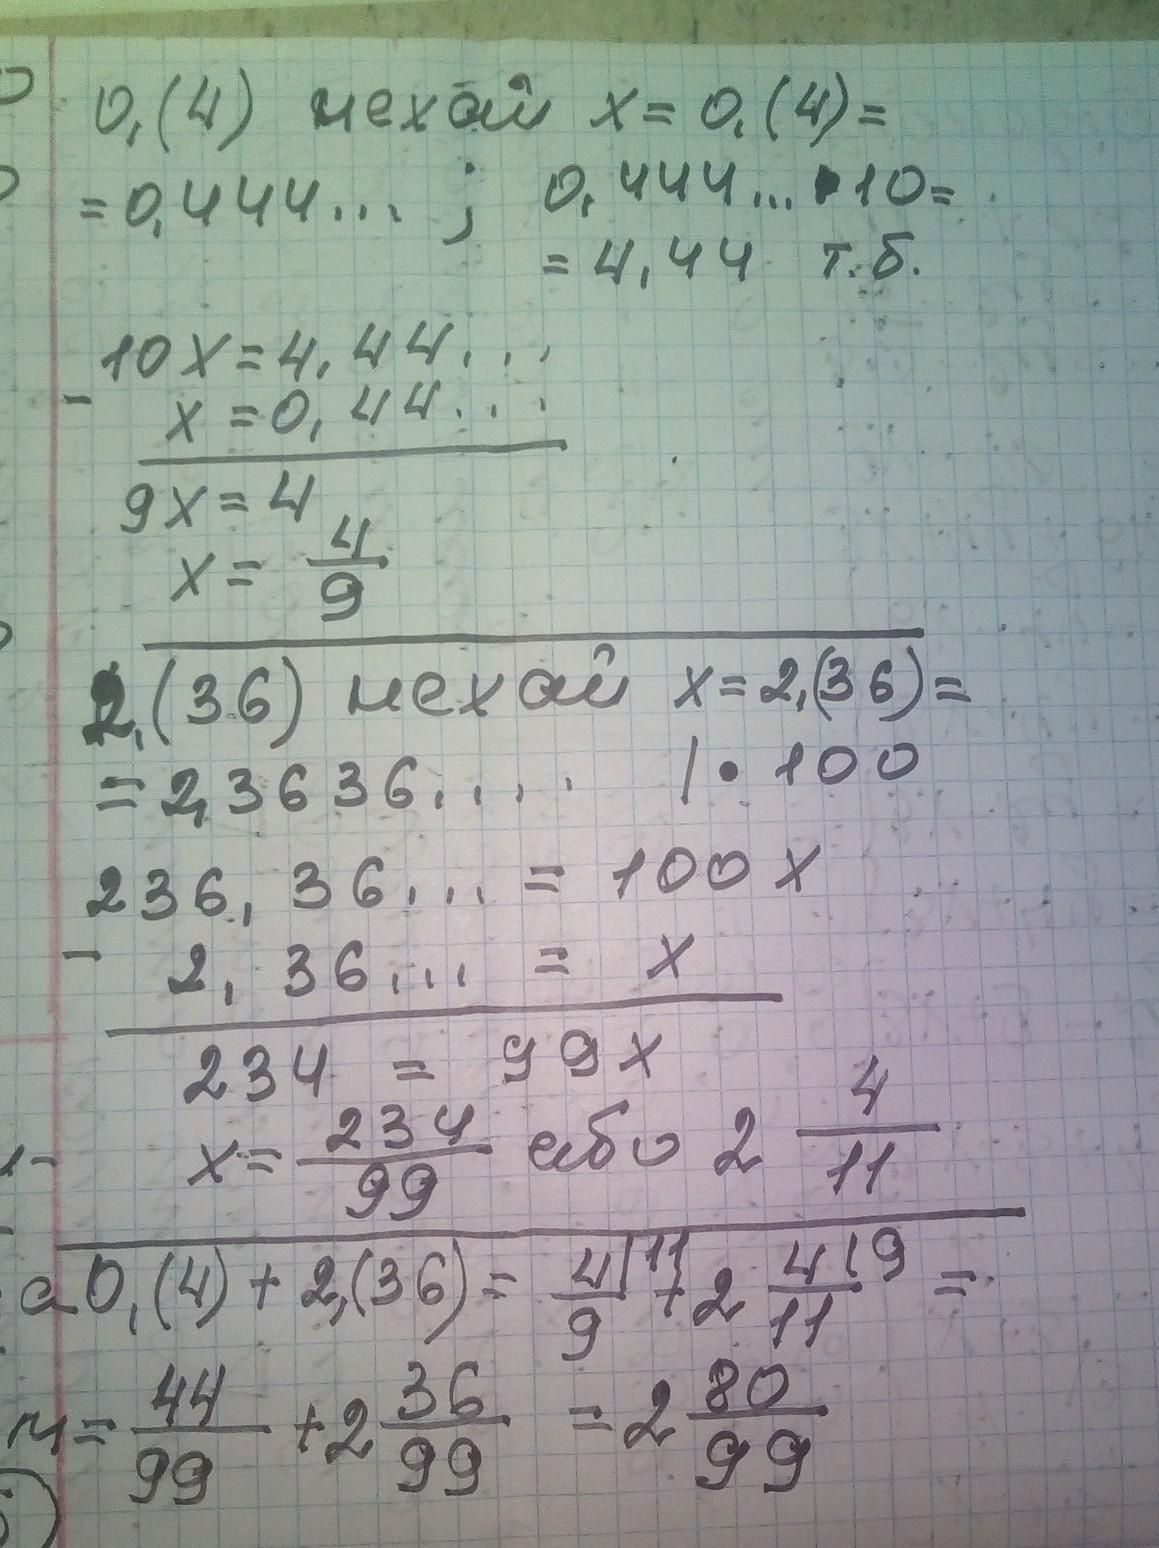 0,(4) нехай x = 0,(4) =
= 0,444... ; 0,444... • 10 =
= 4,44 т.б.
10x = 4,44...
- x = 0,44...
9x = 4
x = 4/9
2,(36) нехай x = 2,(36) =
= 2,3636.... | • 100
236,36... = 100x
- 2,36... = x
234 = 99x
x = 234/99 або 2 4/11
0,(4) + 2,(36) = 4/9 |11 + 2 4/11 |9 =
= 44/99 + 2 36/99 = 2 80/99